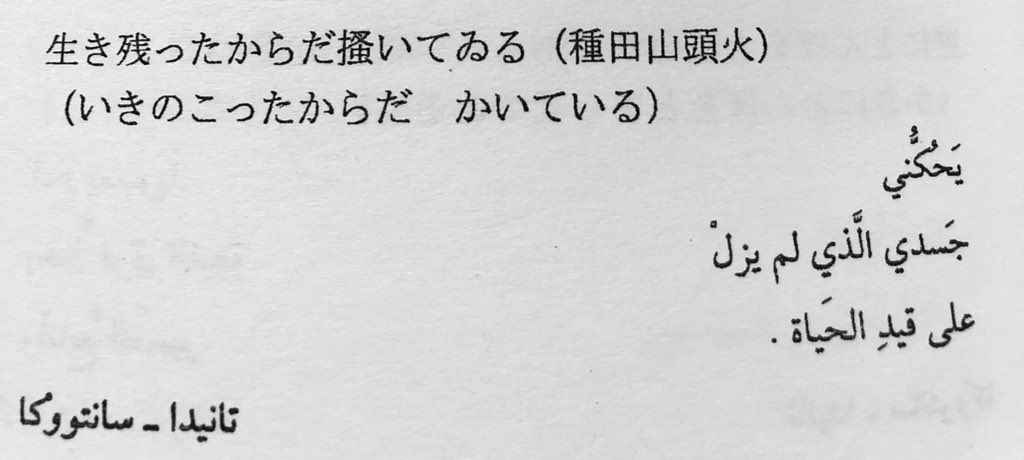 生き残ったからだ搔いてゐる（種田山頭火）
（いきのこったからだ　かいている）
يَحُكُّني
جَسدي الَّذي لم يزلْ
على قيدِ الحَياة .
تانيدا ـ سانتووكا